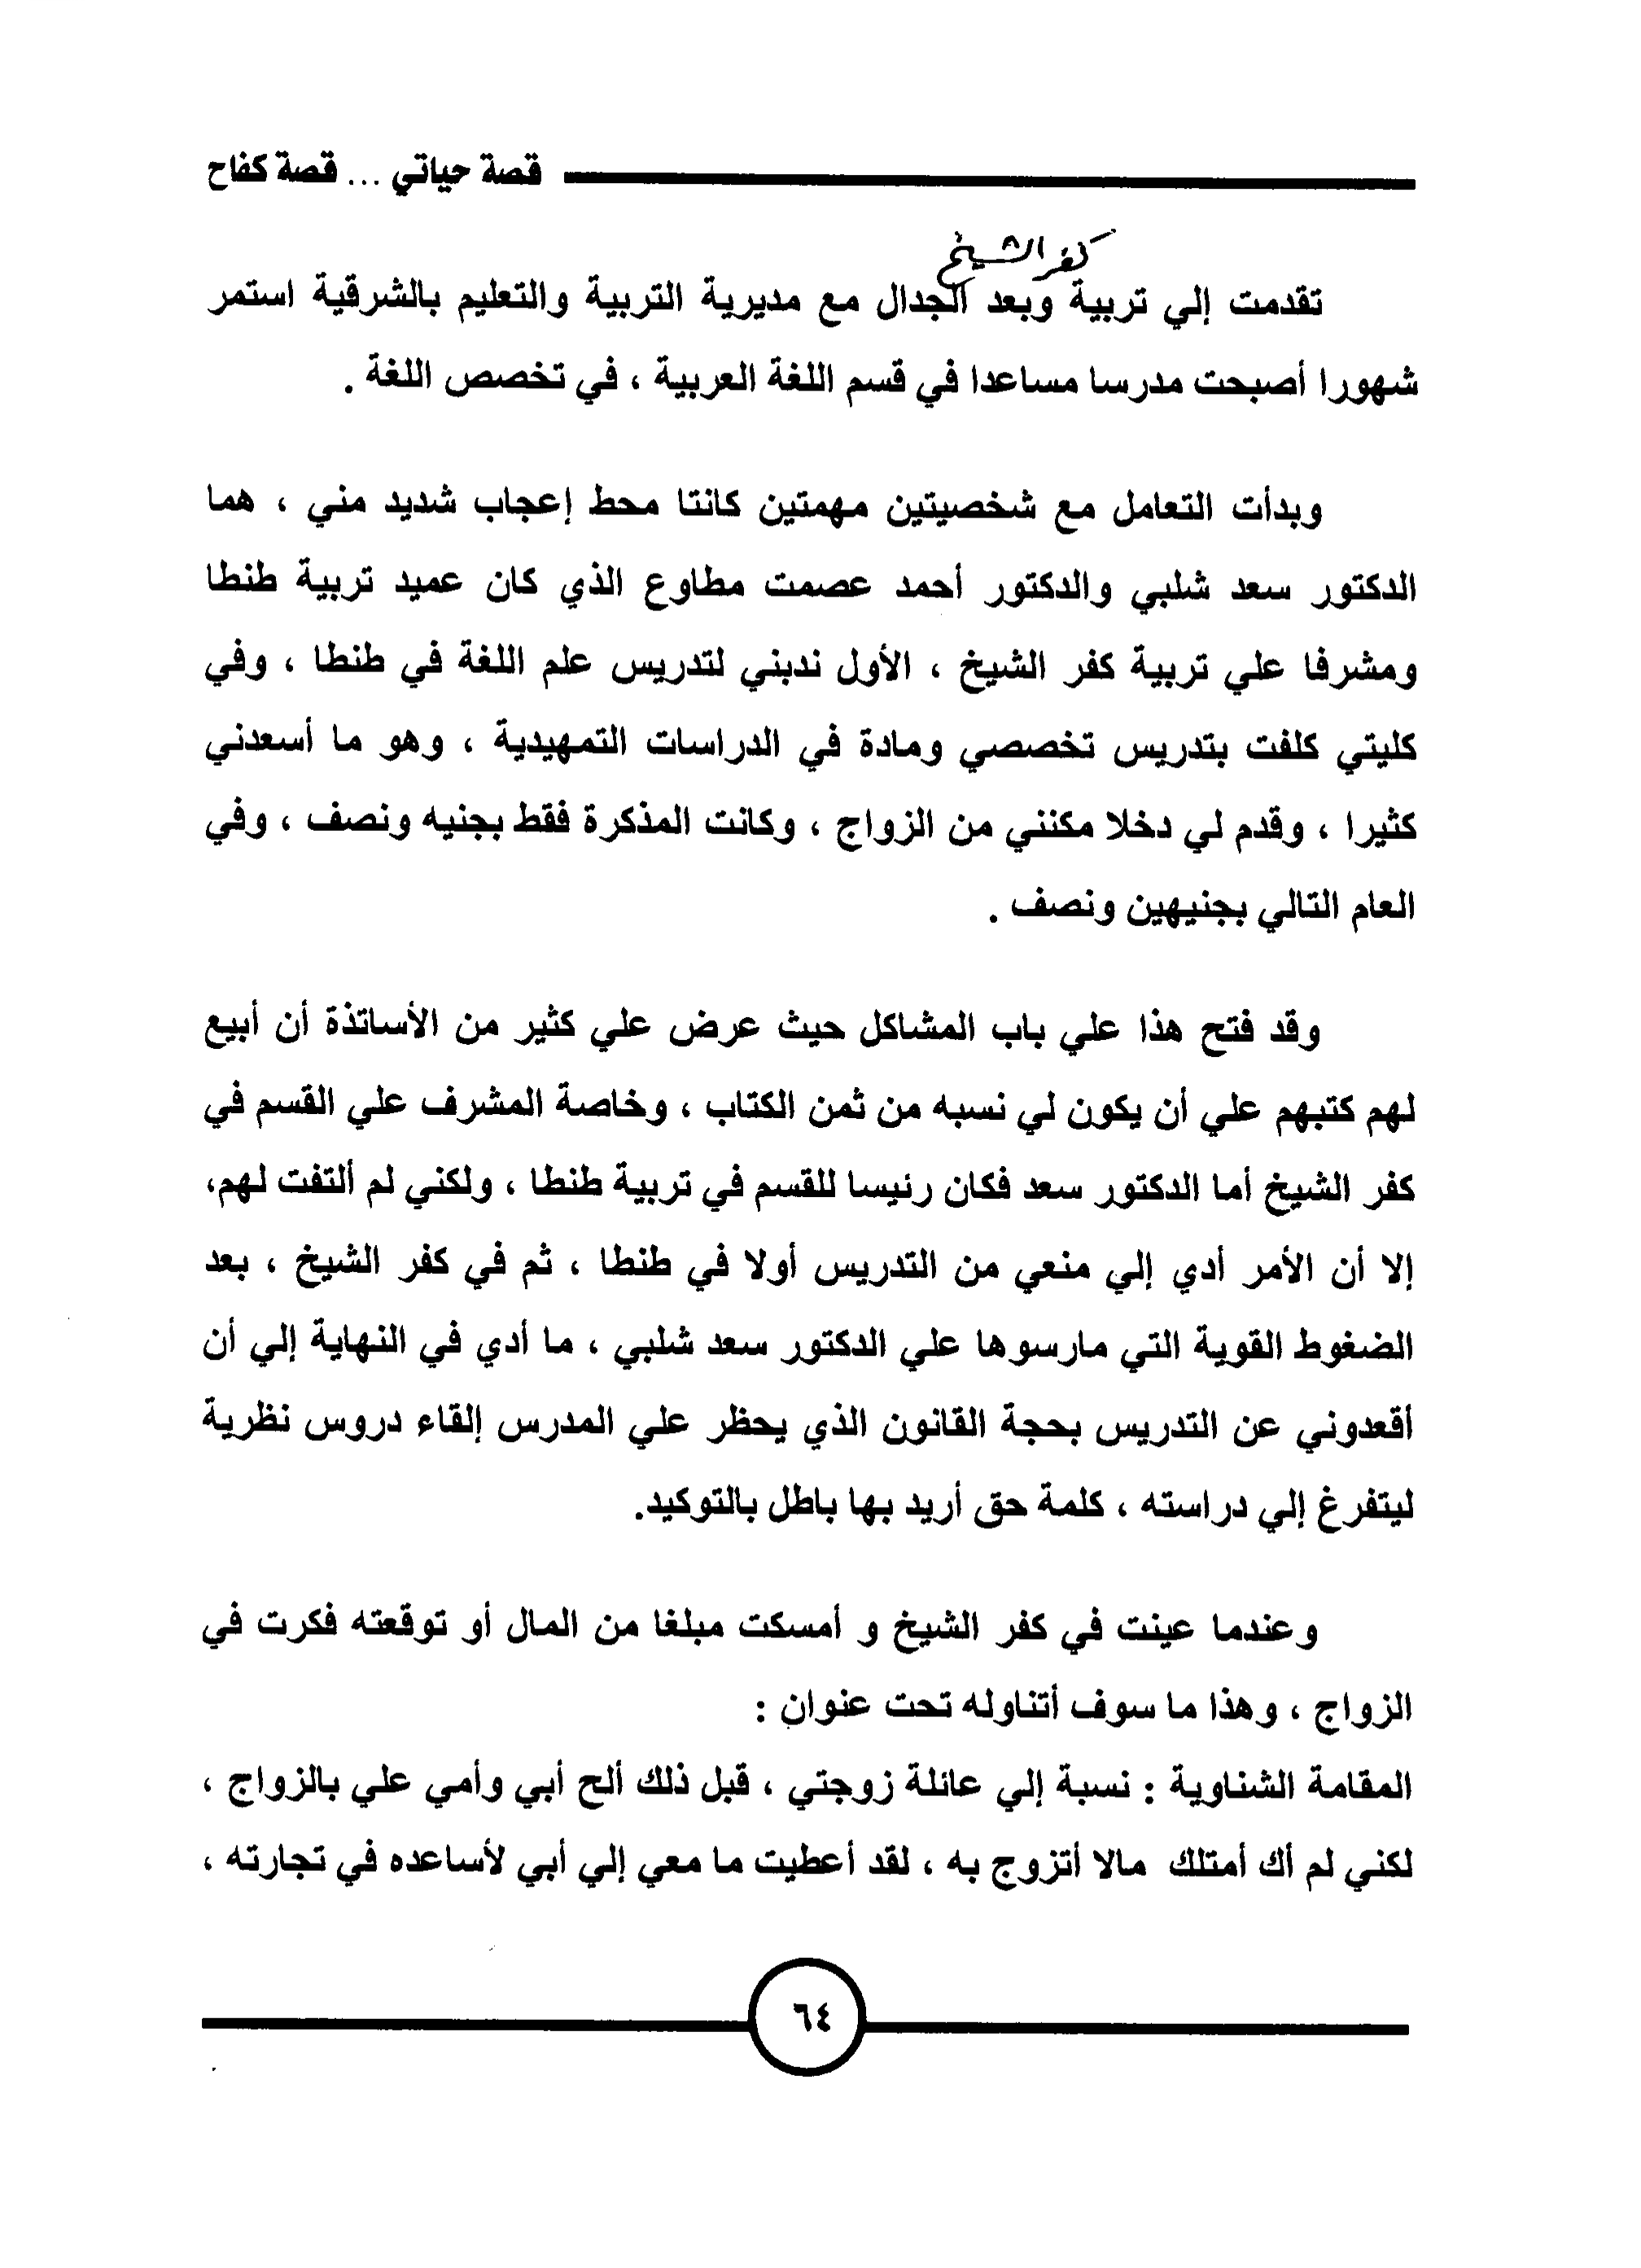 قصة حياتي ... قصة كفاح
كفر الشيخ
تقدمت إلي تربية وبعد الجدال مع مديرية التربية والتعليم بالشرقية استمر
شهورا أصبحت مدرسا مساعدا في قسم اللغة العربية ، في تخصص اللغة .
وبدأت التعامل مع شخصيتين مهمتين كانتا محط إعجاب شديد مني ، هما
الدكتور سعد شلبي والدكتور أحمد عصمت مطاوع الذي كان عميد تربية طنطا
ومشرفا علي تربية كفر الشيخ ، الأول ندبني لتدريس علم اللغة في طنطا ، وفي
كليتي كلفت بتدريس تخصصي ومادة في الدراسات التمهيدية ، وهو ما أسعدني
كثيرا ، وقدم لي دخلا مكنني من الزواج ، وكانت المذكرة فقط بجنيه ونصف ، وفي
العام التالي بجنيهين ونصف .
وقد فتح هذا علي باب المشاكل حيث عرض علي كثير من الأساتذة أن أبيع
لهم كتبهم علي أن يكون لي نسبه من ثمن الكتاب ، وخاصة المشرف علي القسم في
كفر الشيخ أما الدكتور سعد فكان رئيسا للقسم في تربية طنطا ، ولكني لم ألتفت لهم،
إلا أن الأمر أدي إلي منعي من التدريس أولا في طنطا ، ثم في كفر الشيخ ، بعد
الضغوط القوية التي مارسوها علي الدكتور سعد شلبي ، ما أدي في النهاية إلي أن
أقعدوني عن التدريس بحجة القانون الذي يحظر علي المدرس إلقاء دروس نظرية
ليتفرغ إلي دراسته ، كلمة حق أريد بها باطل بالتوكيد.
وعندما عينت في كفر الشيخ و أمسكت مبلغا من المال أو توقعته فكرت في
الزواج ، وهذا ما سوف أتناوله تحت عنوان :
المقامة الشناوية : نسبة إلي عائلة زوجتي ، قبل ذلك ألح أبي وأمي علي بالزواج ،
لكني لم أك أمتلك مالا أتزوج به ، لقد أعطيت ما معي إلي أبي لأساعده في تجارته ،
٦٤